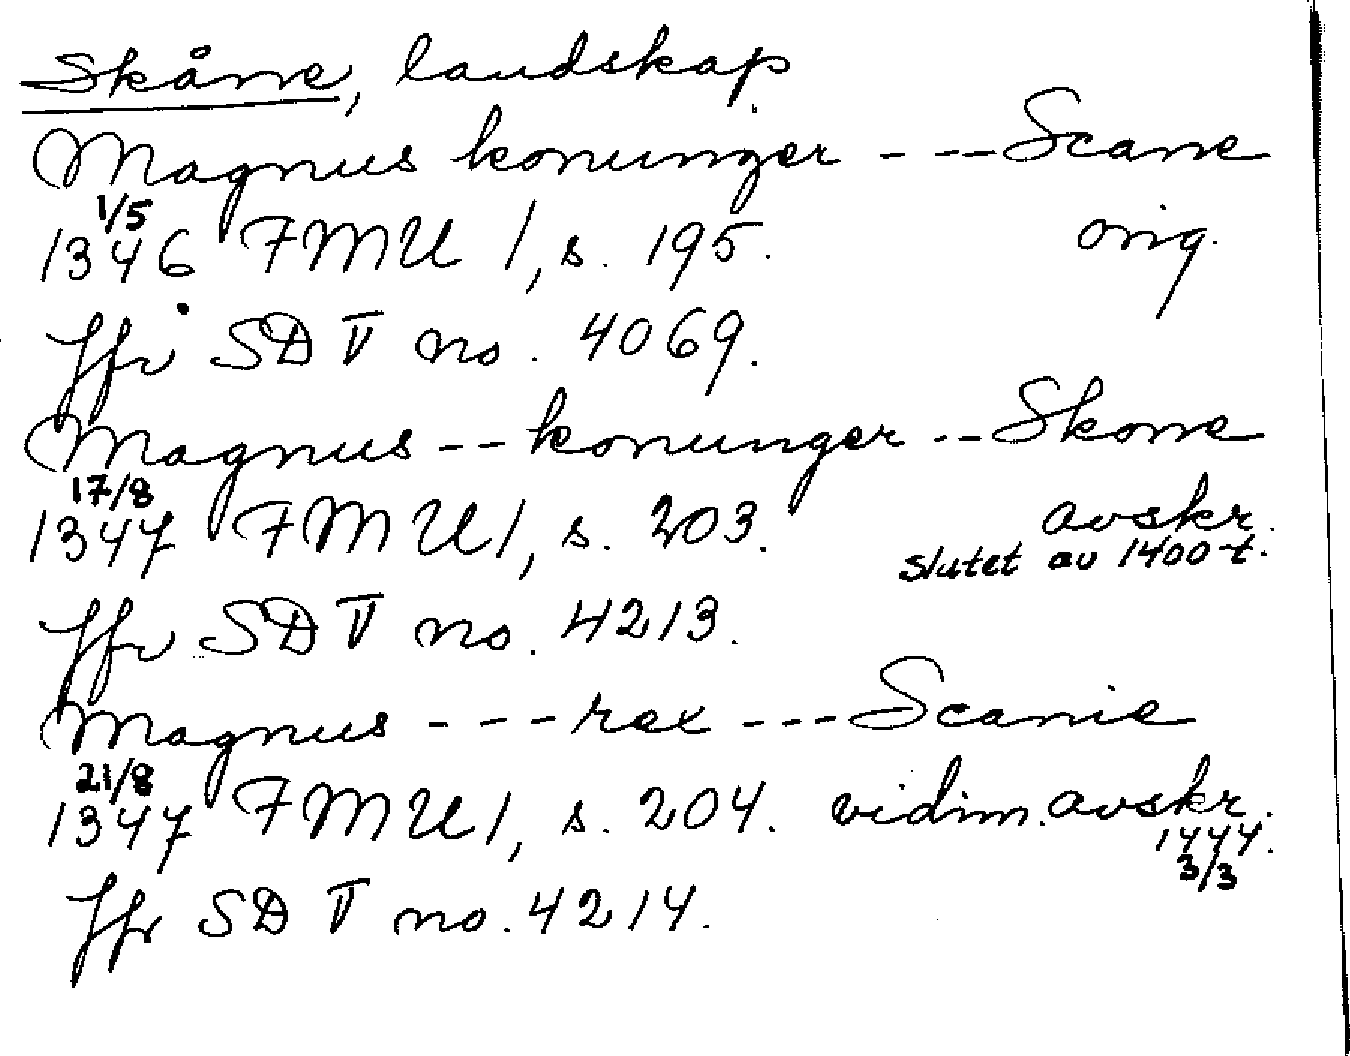 Skåne, landskap
Magnus konunger - - - Scane
1/5
1346 FMU 1, s. 195. orig.
Jfr SD V no. 4069.
Magnus - - konunger - - Skone
17/8
1347 FMU 1, s. 203. avskr.
slutet av 1400-t.
Jfr SD V no. 4213.
Magnus - - - rex - - - Scanie
21/8
1347 FMU 1, s. 204. vidim. avskr.
1444.
3/3
Jfr SD V no. 4214.